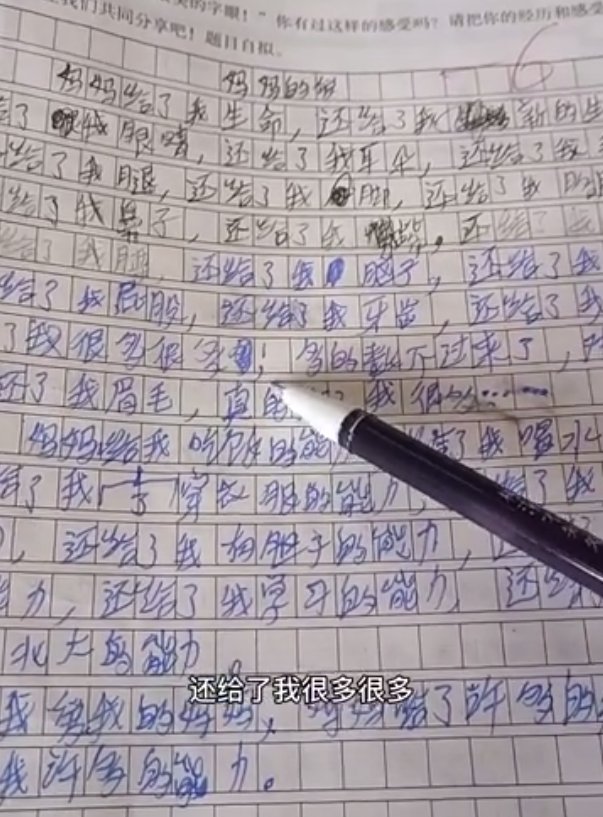 我们共同分享吧！题目自拟。
的字眼！”你有过这样的感受吗？请把你的经历和感受
6
妈妈的
妈妈给了我生命，还给了我新的生
给了我眼睛，还给了我耳朵，还给了我
给了我腿，还给了我脚，还给了我
给了我鼻子，还给了我嘴，还给了
给了我脑，还给了我脑子，还给了我
给了我屁股，还给了我牙齿，还给了我
了我很多很多！多的数不过来了，
还了我眉毛，真的 我很……
妈妈给我吃饭的能 给了我喝水
给了我穿衣服的能力， 给了我
，还给了我 的能力，
力，还给了我学习的能力，还给
北大的能力。
还给了我很多很多
我 我的妈妈，妈妈给了许多的
我许多的能力。